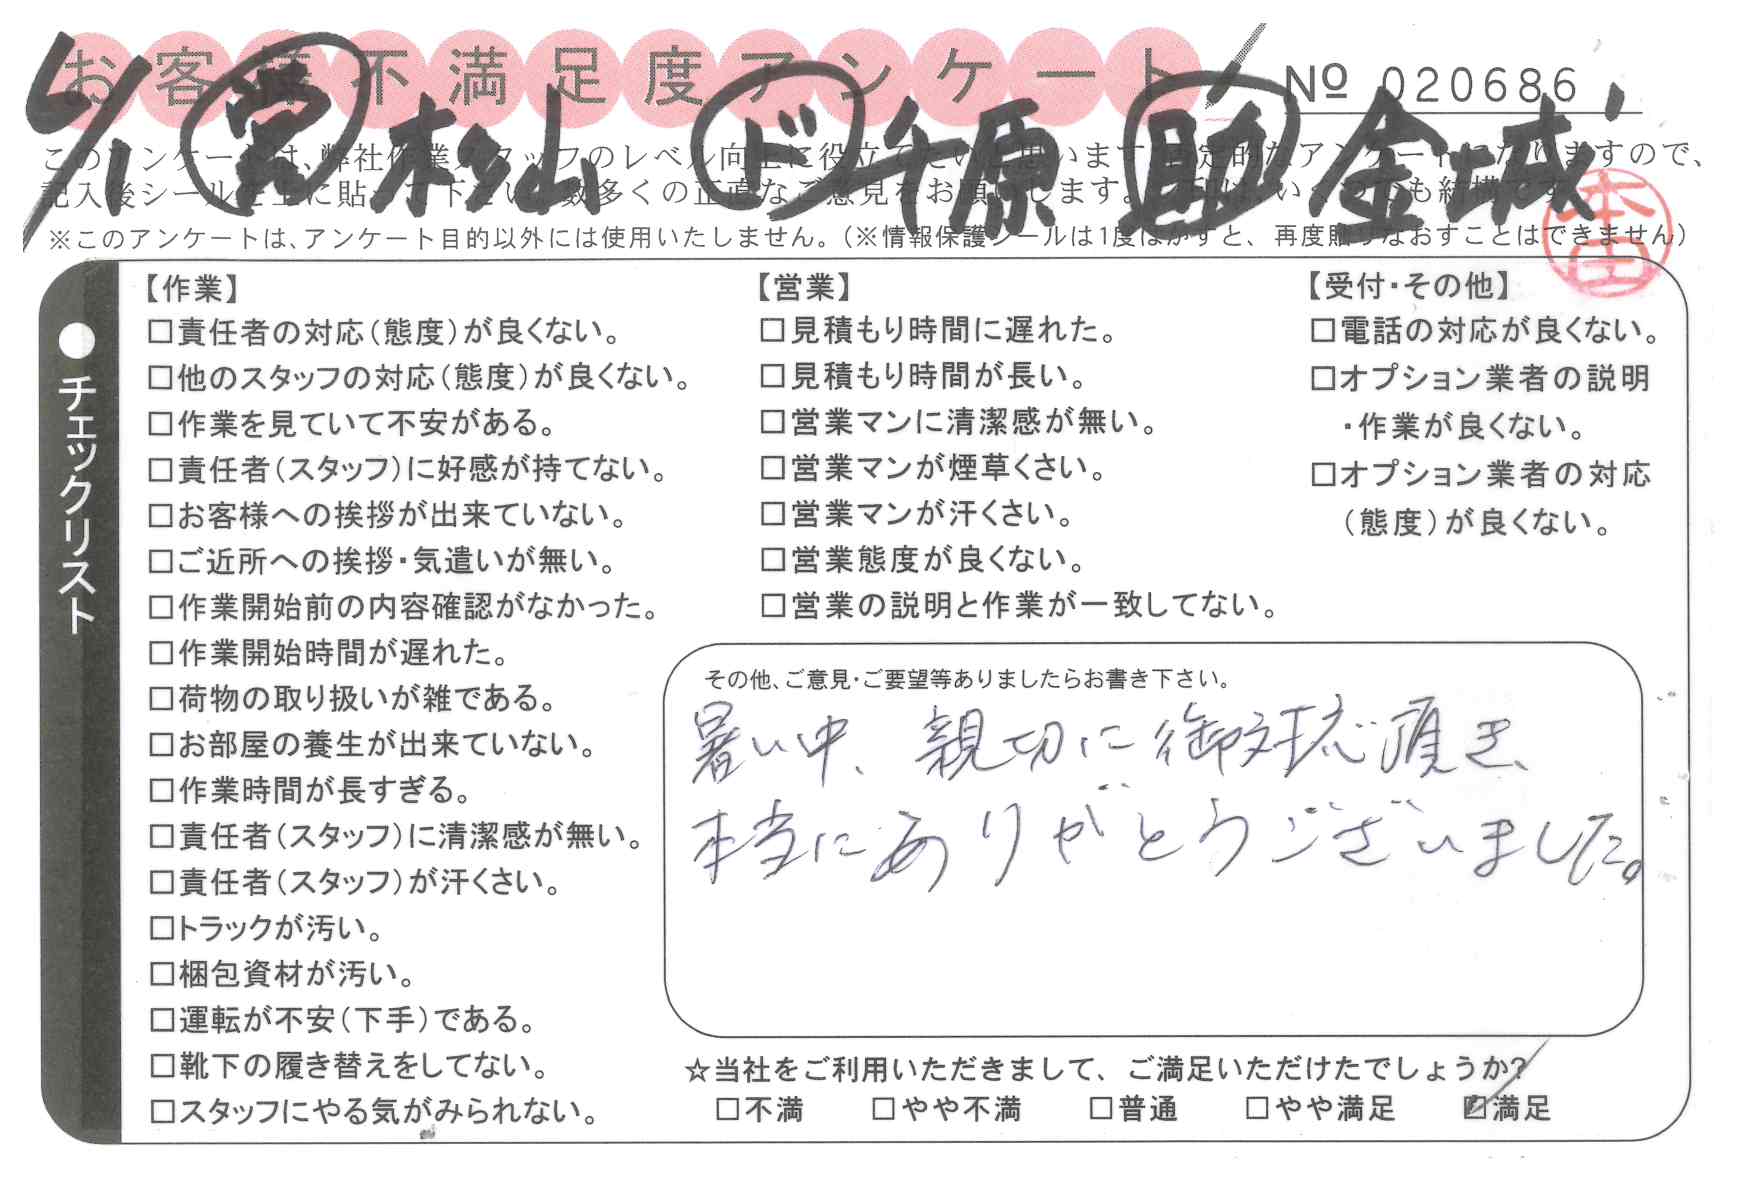 お客様不満足度アンケート
№ 020686
営 松山 ド 千原 助 金城
このアンケートは、弊社作業スタッフのレベル向上に役立てたいと思います。定的なアンケートになりますので、
記入後シールを上に貼って下さい。数多くの正直なご意見をお願いします。いくつでも結構です。
※このアンケートは、アンケート目的以外には使用いたしません。(※情報保護シールは1度はがすと、再度貼りなおすことはできません)
本田
●チェックリスト
【作業】
□責任者の対応(態度)が良くない。
□他のスタッフの対応(態度)が良くない。
□作業を見ていて不安がある。
□責任者(スタッフ)に好感が持てない。
□お客様への挨拶が出来ていない。
□ご近所への挨拶・気遣いが無い。
□作業開始前の内容確認がなかった。
□作業開始時間が遅れた。
□荷物の取り扱いが雑である。
□お部屋の養生が出来ていない。
□作業時間が長すぎる。
□責任者(スタッフ)に清潔感が無い。
□責任者(スタッフ)が汗くさい。
□トラックが汚い。
□梱包資材が汚い。
□運転が不安(下手)である。
□靴下の履き替えをしてない。
□スタッフにやる気がみられない。
【営業】
□見積もり時間に遅れた。
□見積もり時間が長い。
□営業マンに清潔感が無い。
□営業マンが煙草くさい。
□営業マンが汗くさい。
□営業態度が良くない。
□営業の説明と作業が一致してない。
【受付・その他】
□電話の対応が良くない。
□オプション業者の説明
・作業が良くない。
□オプション業者の対応
(態度)が良くない。
その他、ご意見・ご要望等ありましたらお書き下さい。
暑い中、親切に御対応頂き、
本当にありがとうございました。
☆当社をご利用いただきまして、ご満足いただけたでしょうか?
□不満 □やや不満 □普通 □やや満足 ☑満足